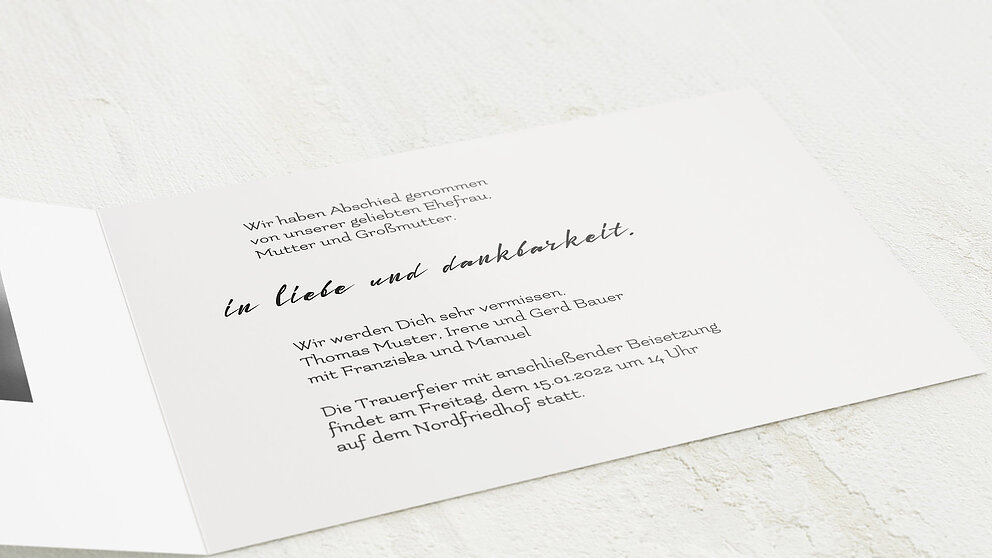 Wir haben Abschied genommen
von unserer geliebten Ehefrau,
Mutter und Großmutter.
in liebe und dankbarkeit.
Wir werden Dich sehr vermissen.
Thomas Muster, Irene und Gerd Bauer
mit Franziska und Manuel
Die Trauerfeier mit anschließender Beisetzung
findet am Freitag, dem 15.01.2022 um 14 Uhr
auf dem Nordfriedhof statt.